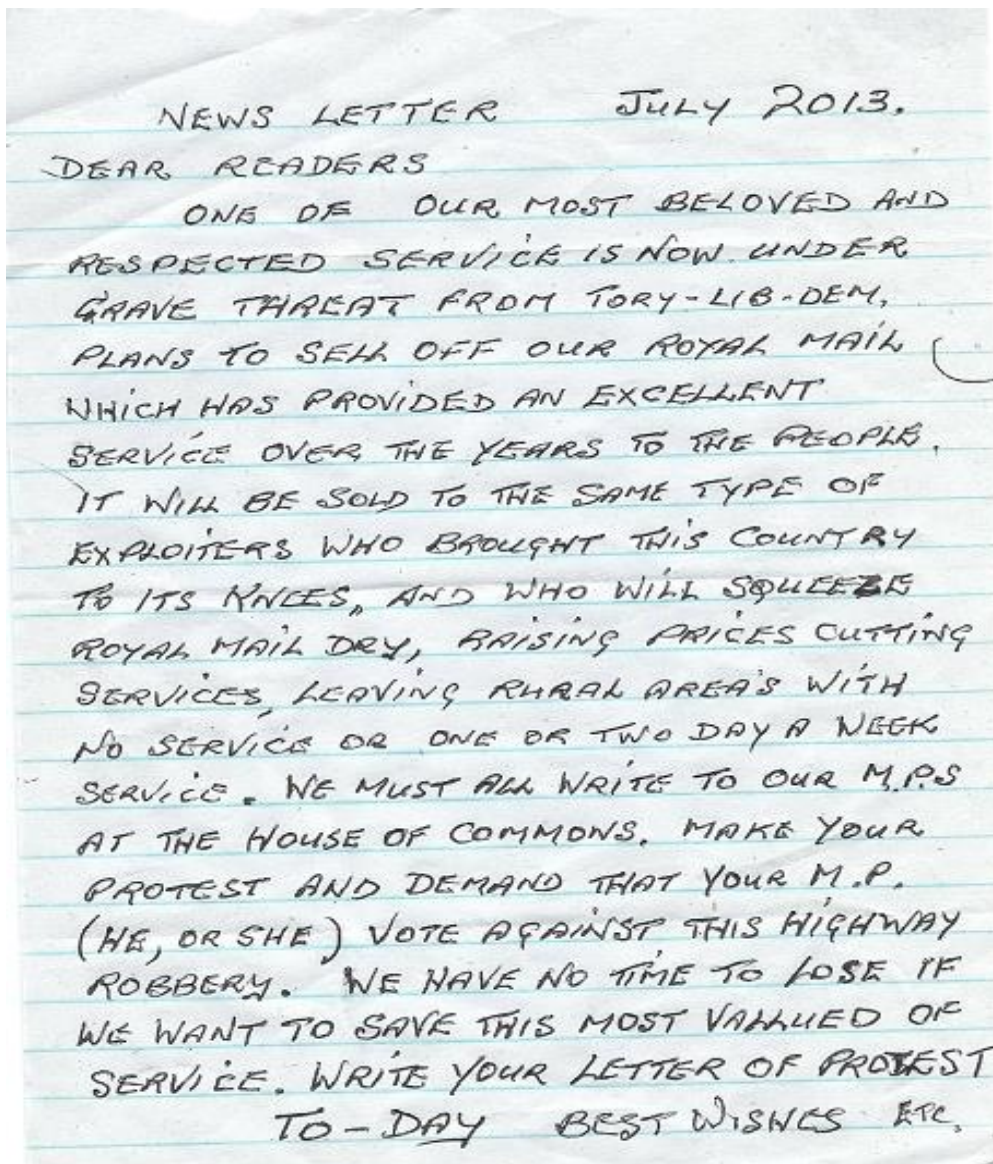 NEWS LETTER JULY 2013.
DEAR READERS
ONE OF OUR MOST BELOVED AND
RESPECTED SERVICE IS NOW UNDER
GRAVE THREAT FROM TORY-LIB-DEM.
PLANS TO SELL OFF OUR ROYAL MAIL
WHICH HAS PROVIDED AN EXCELLENT
SERVICE OVER THE YEARS TO THE PEOPLE.
IT WILL BE SOLD TO THE SAME TYPE OF
EXPLOITERS WHO BROUGHT THIS COUNTRY
TO ITS KNEES, AND WHO WILL SQUEEZE
ROYAL MAIL DRY, RAISING PRICES CUTTING
SERVICES, LEAVING RURAL AREA'S WITH
NO SERVICE OR ONE OR TWO DAY A WEEK
SERVICE. WE MUST ALL WRITE TO OUR M.P.S
AT THE HOUSE OF COMMONS. MAKE YOUR
PROTEST AND DEMAND THAT YOUR M.P.
(HE, OR SHE) VOTE AGAINST THIS HIGHWAY
ROBBERY. WE HAVE NO TIME TO LOSE IF
WE WANT TO SAVE THIS MOST VALLUED OF
SERVICE. WRITE YOUR LETTER OF PROTEST
TO-DAY BEST WISHES ETC.